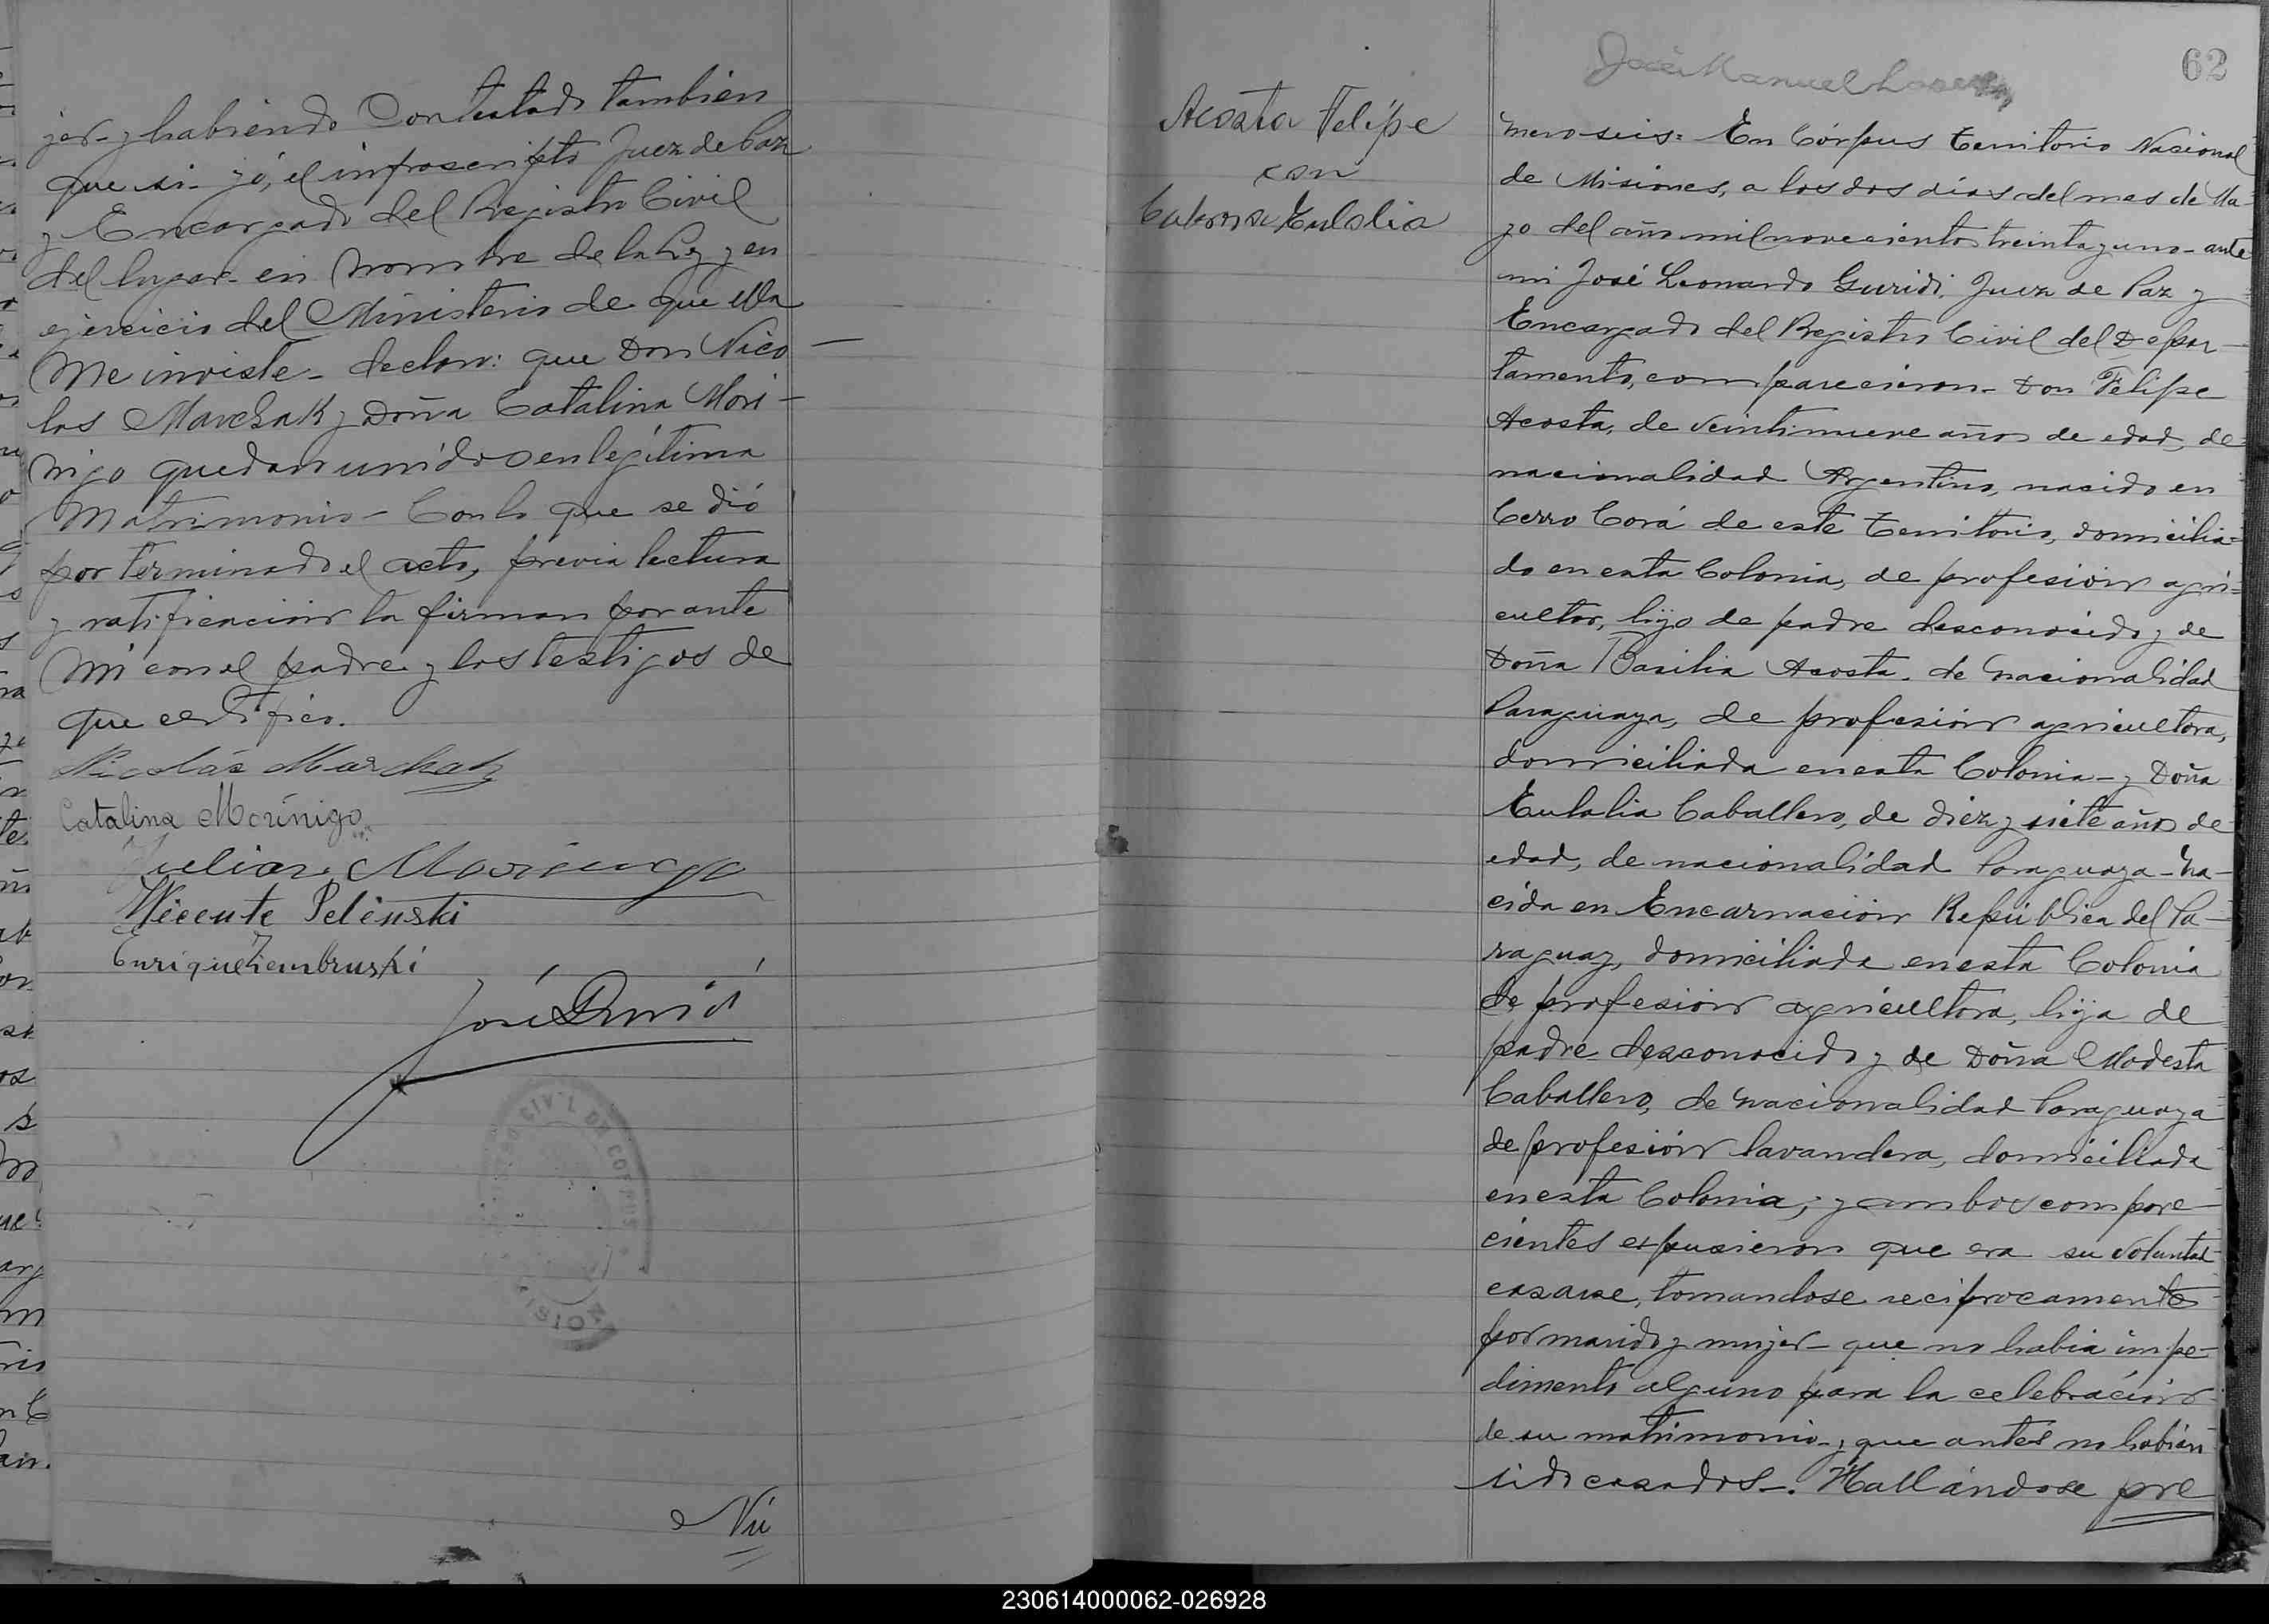 jer- y habiendo Contestado tambien
que si- yó, el infrascripto Juez de Paz
y Encargado del Registro Civil
del lugar- en nombre de la Ley y en
ejercicio del Ministerio de que ella
me inviste- declaro: que Don Nico-
las Marchak y Doña Catalina Mori-
nigo quedan unidos en legítima
Matrimonio- Con lo que se dió
por terminado el acto, previa lectura
y ratificación la firman por ante
mi con el padre y los testigos de
que certifico.
Nicolás Marchak
Catalina Morínigo
Julian Morinigo
Vicente Pelinski
Enrique Zembruski
José Guridi
REGISTRO CIVIL DE CORPUS
MISIONES
Nú
62
José Manuel
Acosta Felipe
con
Eulalia
mero seis: En Córpus Territorio Nacional
de Misiones, a los dos días del mes de Ma-
yo del año mil novecientos treinta y uno- ante
mi José Leonardo Guridi, Juez de Paz y
Encargado del Registro Civil del Depar-
tamento, comparecieron- Don Felipe
Acosta, de veintinueve años de edad, de
nacionalidad Argentino, nacido en
Cerro Corá de este Territorio, domicilia-
do en esta Colonia, de profesión agri-
cultor, hijo de padre desconocido y de
Doña Basilia Acosta- de nacionalidad
Paraguaya, de profesión agricultora,
domiciliada en esta Colonia- y Doña
Eulalia Caballero, de diez y siete años de
edad, de nacionalidad Paraguaya- na-
cida en Encarnación República del Pa-
raguay, domiciliada en esta Colonia
de profesión agricultora, hija de
padre desconocido y de Doña Modesta
Caballero, de nacionalidad Paraguaya
de profesión lavandera, domiciliada
en esta Colonia; y ambos compare-
cientes expusieron que era su voluntad
casarse, tomandose reciprocamente
por marido y mujer- que no habia impe-
dimento alguno para la celebración
de su matrimonio- y que antes no habian
sido casados-. Hallándose pre
230614000062-026928